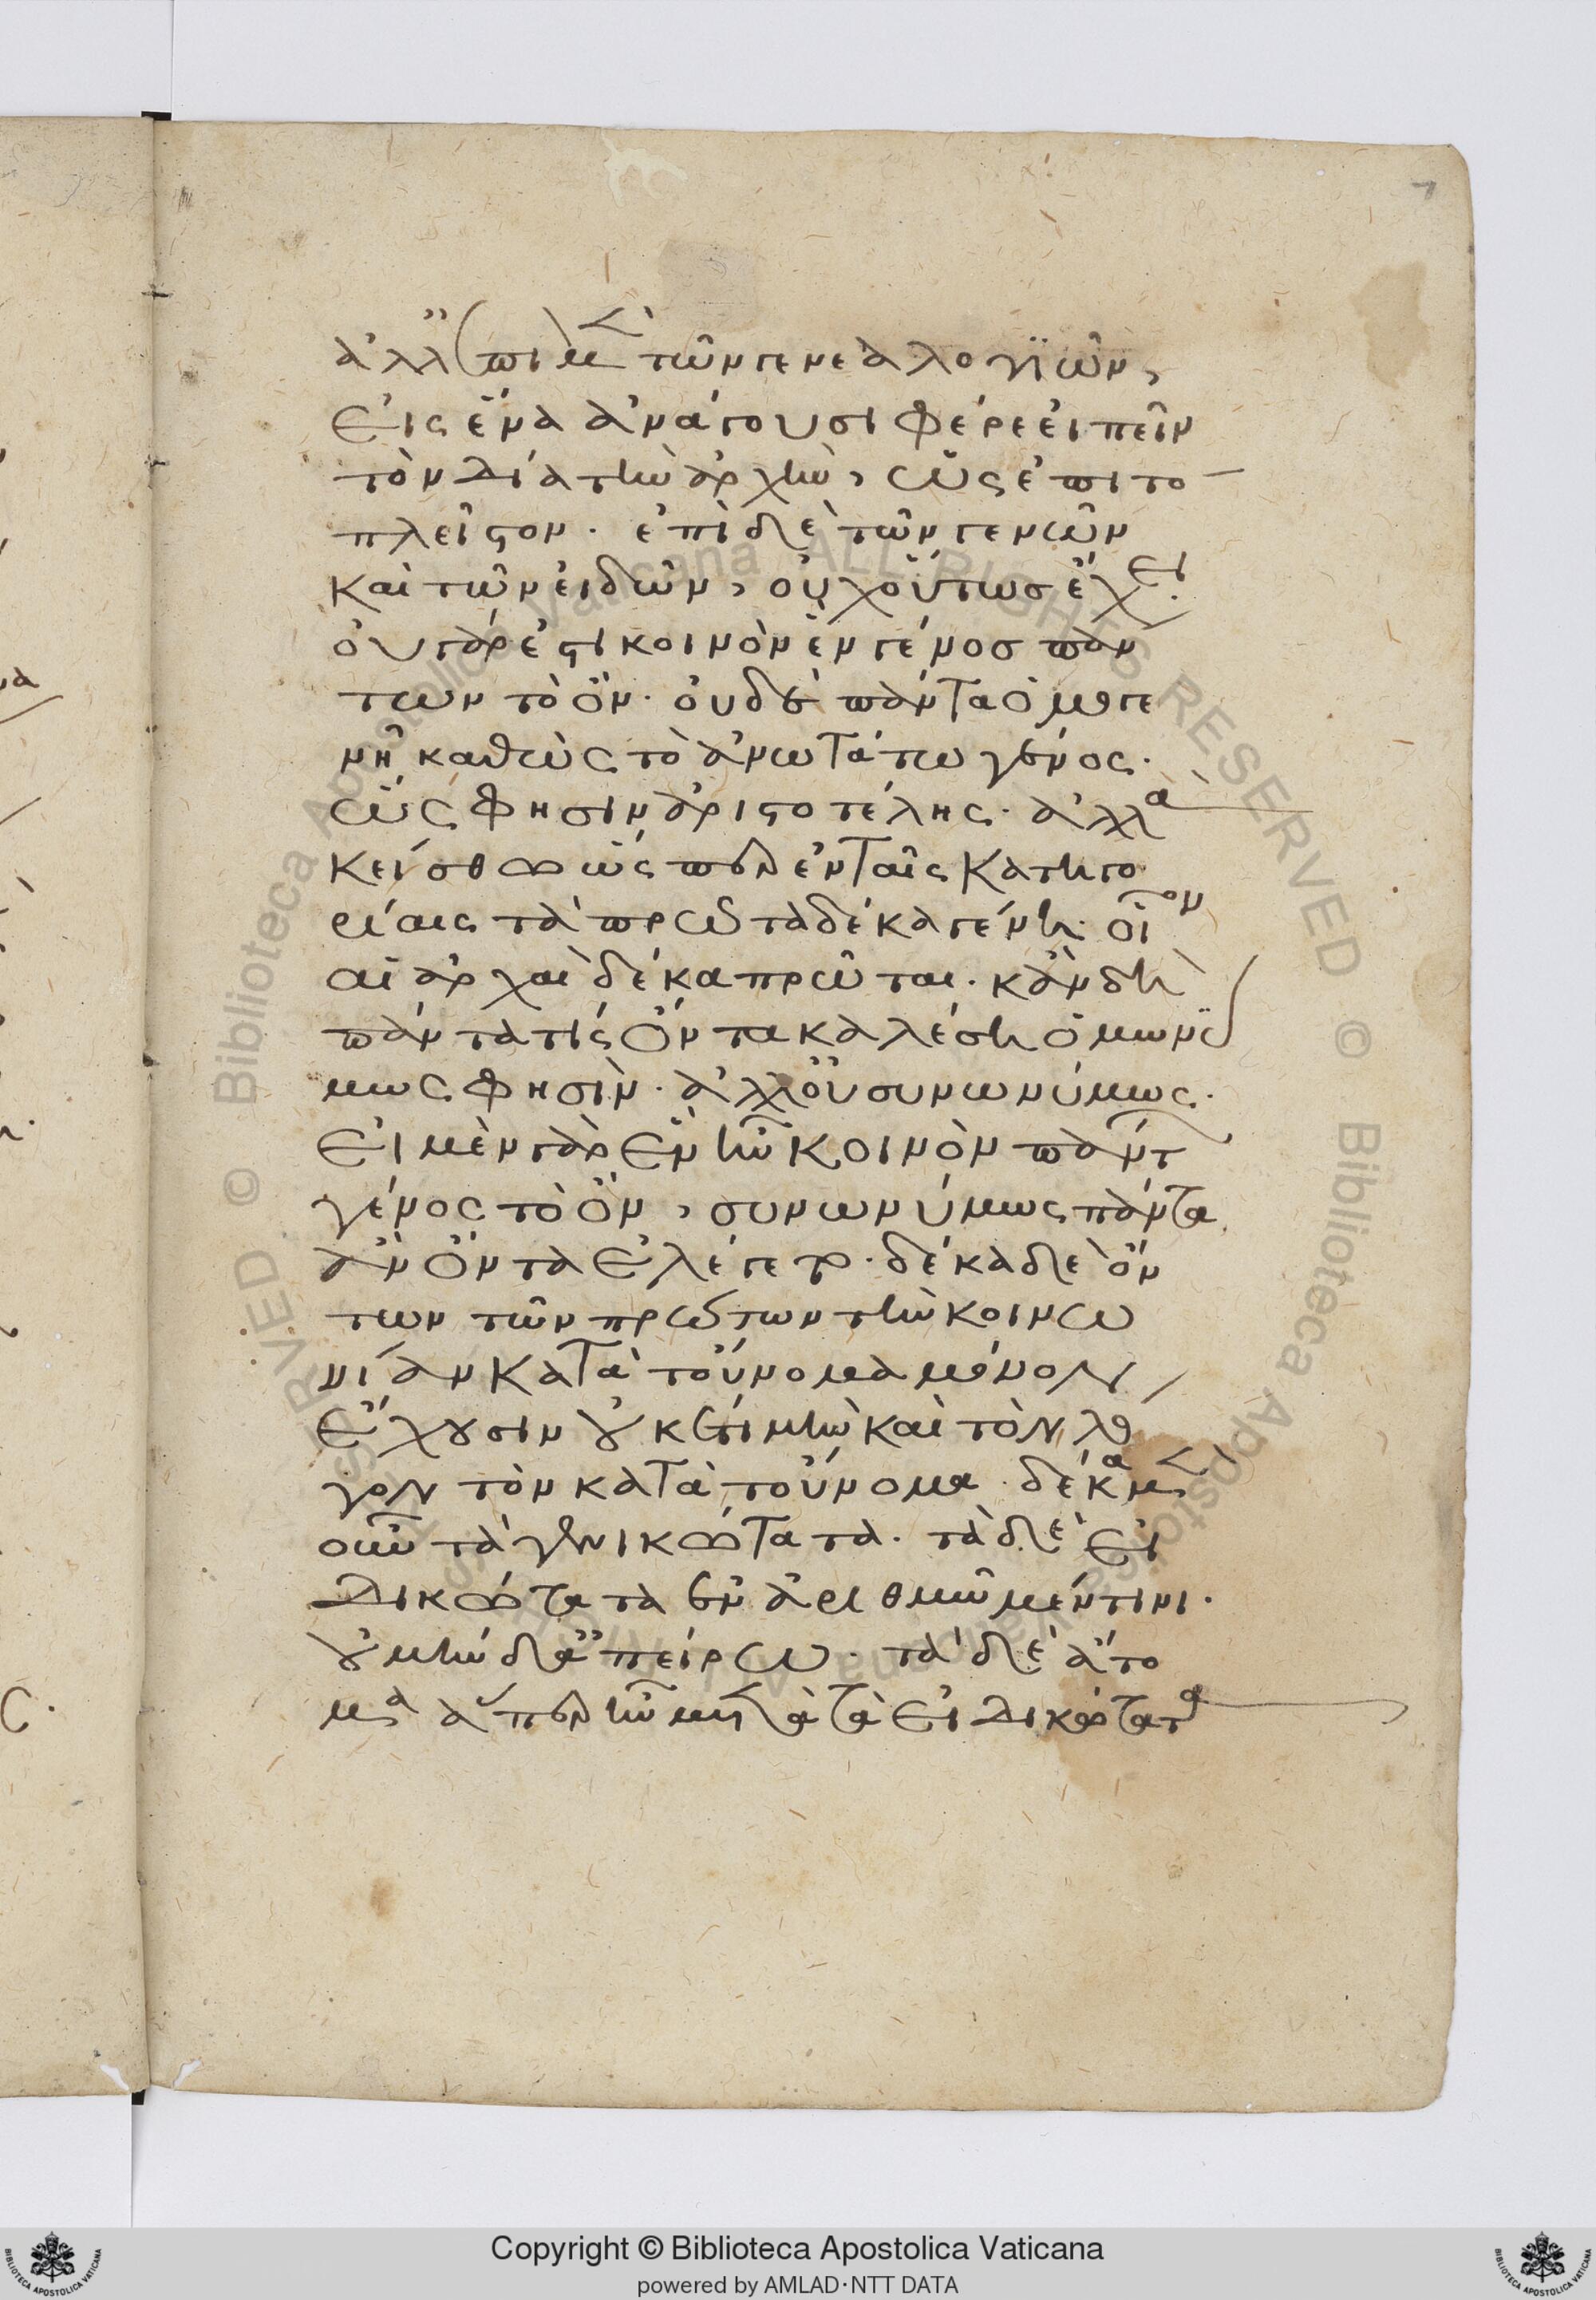 ἀλλ' ἐπὶ μὲν τῶν γενεαλογιῶν,
εἰς ἕνα ἀνάγουσι φέρε εἰπεῖν
τὸν Δία τὴν ἀρχὴν, ὡς ἐπιτο
πλεῖστον. ἐπὶ δὲ τῶν γενῶν
καὶ τῶν εἰδῶν, οὐχ οὕτωσ ἔχει.
οὐ γάρ ἐστι κοινὸν ἓν γένοσ πάν
των τὸ ὄν. οὐδὲ πάντα ὁμογε
νῆ καθ' ὡς τὸ ἀνωτάτω γένος.
ὥς φησιν ἀριστοτέλης. ἀλλὰ
κείσθω ὥσπερ ἐν ταῖς κατηγο
ρίαις τὰ πρῶτα δέκα γένη. οἷον
αἱ ἀρχαὶ δέκα πρῶται. κἂν δὴ
πάντα τίς ὄντα καλέση ὁμωνύ
μως φησὶν. ἀλλ' οὐ συνωνύμως.
εἰ μὲν γὰρ ἓν ἦν κοινὸν πάντων
γένος τὸ ὄν, συνωνύμως πάντα
ἂν ὄντα ἐλέγετο. δέκα δὲ ὄν
των τῶν πρώτων τὴν κοινω
νίαν κατὰ τοὔνομα μόνον
ἔχουσιν οὐκέτι μὴν καὶ τὸν λό
γον τὸν κατὰ τοὔνομα. δέκα μὲν
οὖν τὰ γενικώτατα. τὰ δὲ εἰ
δικώτατα ἐν ἀριθμῶ μέν τινι.
οὐ μὴν δ' ἀπείρω. τὰ δὲ ἄτο
μα ἅπερ ἦν μετὰ τὰ εἰδικώτατα
7
Copyright © Biblioteca Apostolica Vaticana
powered by AMLAD·NTT DATA